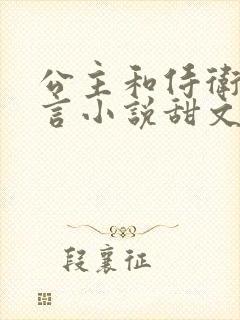 公主和侍衛
言小說甜文
段襄征